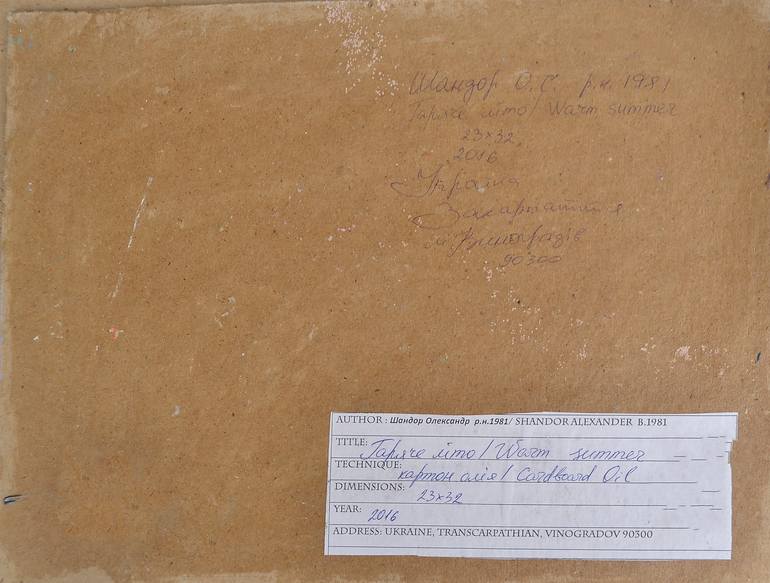 Шандор О.С. р.н. 1981
Гаряче літо / Warm summer
23×32
2016
Україна
Закарпаття
м. Виноградів
90300
AUTHOR : Шандор Олександр р.н.1981/ SHANDOR ALEXANDER B.1981
TITLE: Гаряче літо / Warm summer
TECHNIQUE: картон олія / Cardboard Oil
DIMENSIONS: 23×32
YEAR: 2016
ADDRESS: UKRAINE, TRANSCARPATHIAN, VINOGRADOV 90300